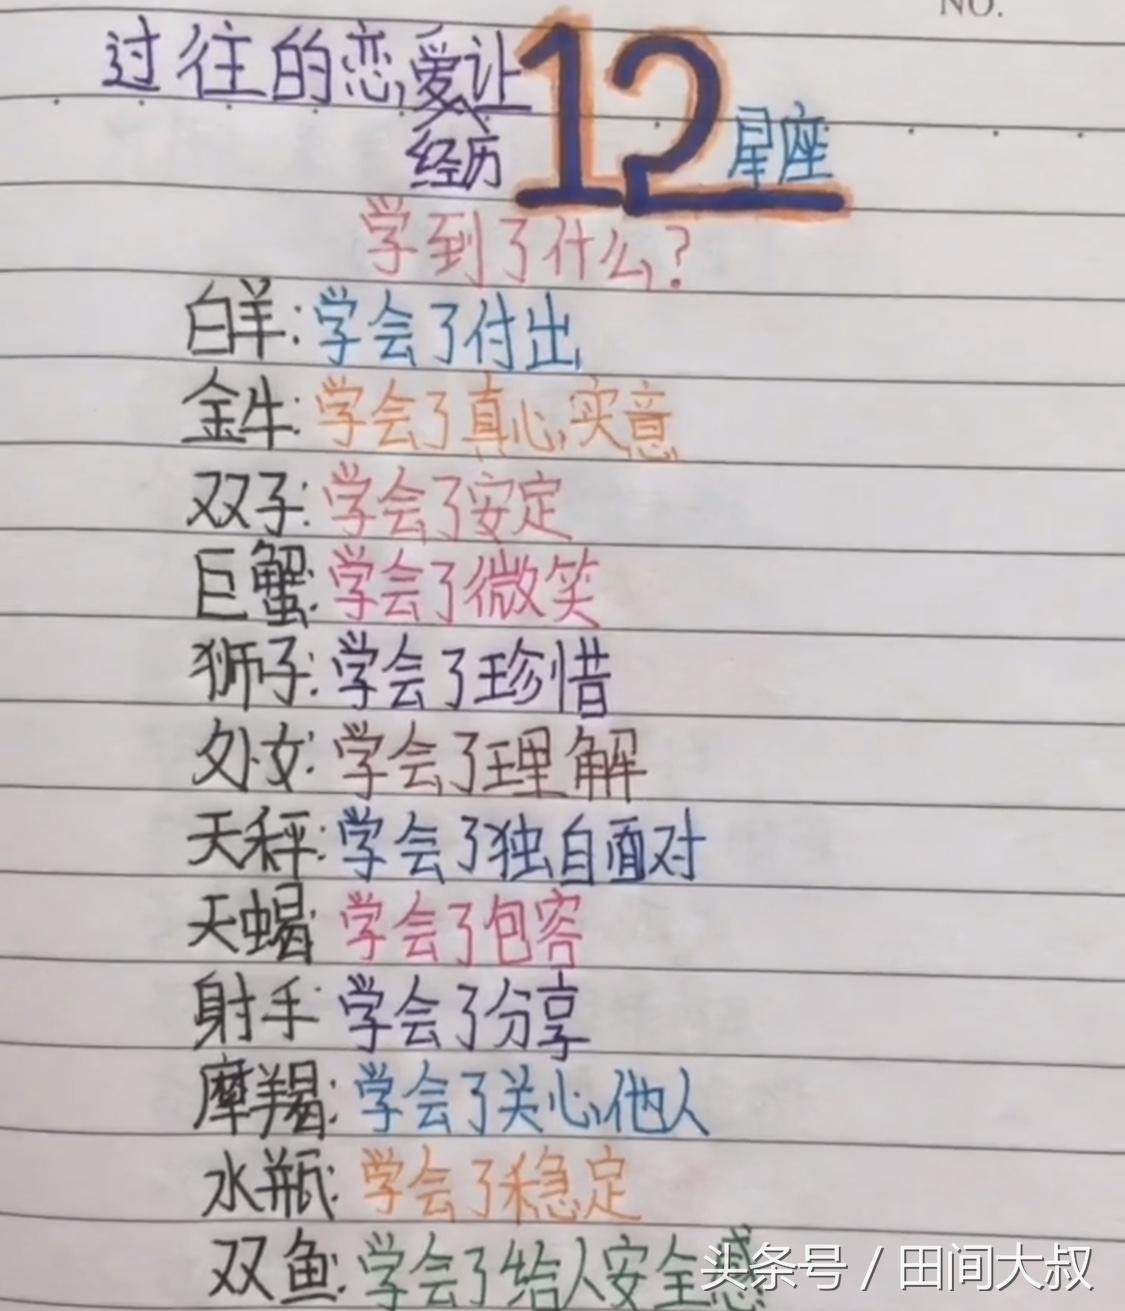 NO.
过往的恋爱让12星座
经历
学到了什么?
白羊:学会了付出
金牛:学会了真心实意
双子:学会了安定
巨蟹:学会了微笑
狮子:学会了珍惜
处女:学会了理解
天秤:学会了独自面对
天蝎:学会了包容
射手:学会了分享
摩羯:学会了关心他人
水瓶:学会了稳定
双鱼:学会了给人安全感
头条号 / 田间大叔